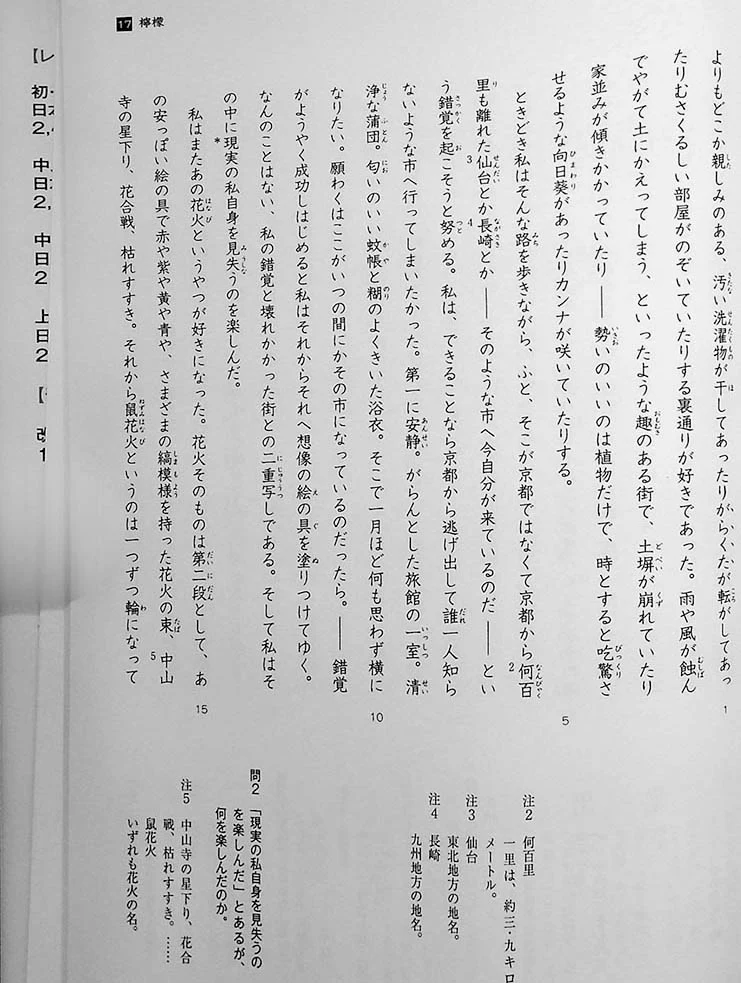 17 檸檬
よりもどこか親しみのある、汚い洗濯物が干してあったりがらくたが転がしてあっ
たりむさくるしい部屋がのぞいていたりする裏通りが好きであった。雨や風が蝕ん
でやがて土にかえってしまう、といったような趣のある街で、土塀が崩れていたり
家並みが傾きかかっていたり――勢いのいいのは植物だけで、時とすると吃驚さ
せるような向日葵があったりカンナが咲いていたりする。
ときどき私はそんな路を歩きながら、ふと、そこが京都ではなくて京都から何百
里も離れた仙台とか長崎とか――そのような市へ今自分が来ているのだ――とい
う錯覚を起こそうと努める。私は、できることなら京都から逃げ出して誰一人知ら
ないような市へ行ってしまいたかった。第一に安静。がらんとした旅館の一室。清
浄な蒲団。匂いのいい蚊帳と糊のよくきいた浴衣。そこで一月ほど何も思わず横に
なりたい。願わくはここがいつの間にかその市になっているのだったら。――錯覚
がようやく成功しはじめると私はそれからそれへ想像の絵の具を塗りつけてゆく。
なんのことはない、私の錯覚と壊れかかった街との二重写しである。そして私はそ
の中に*現実の私自身を見失うのを楽しんだ。
私はまたあの花火というやつが好きになった。花火そのものは第二段として、あ
の安っぽい絵の具で赤や紫や黄や青や、さまざまの縞模様を持った花火の束、中山
寺の星下り、花合戦、枯れすすき。それから鼠花火というのは一つずつ輪になって
1
5
10
15
注2 何百里
一里は、約三・九キロ
メートル。
注3 仙台
東北地方の地名。
注4 長崎
九州地方の地名。
問2 「現実の私自身を見失うの
を楽しんだ」とあるが、
何を楽しんだのか。
注5 中山寺の星下り、花合
戦、枯れすすき。……
鼠花火
いずれも花火の名。
初日2, 中日2, 中日2 上日2